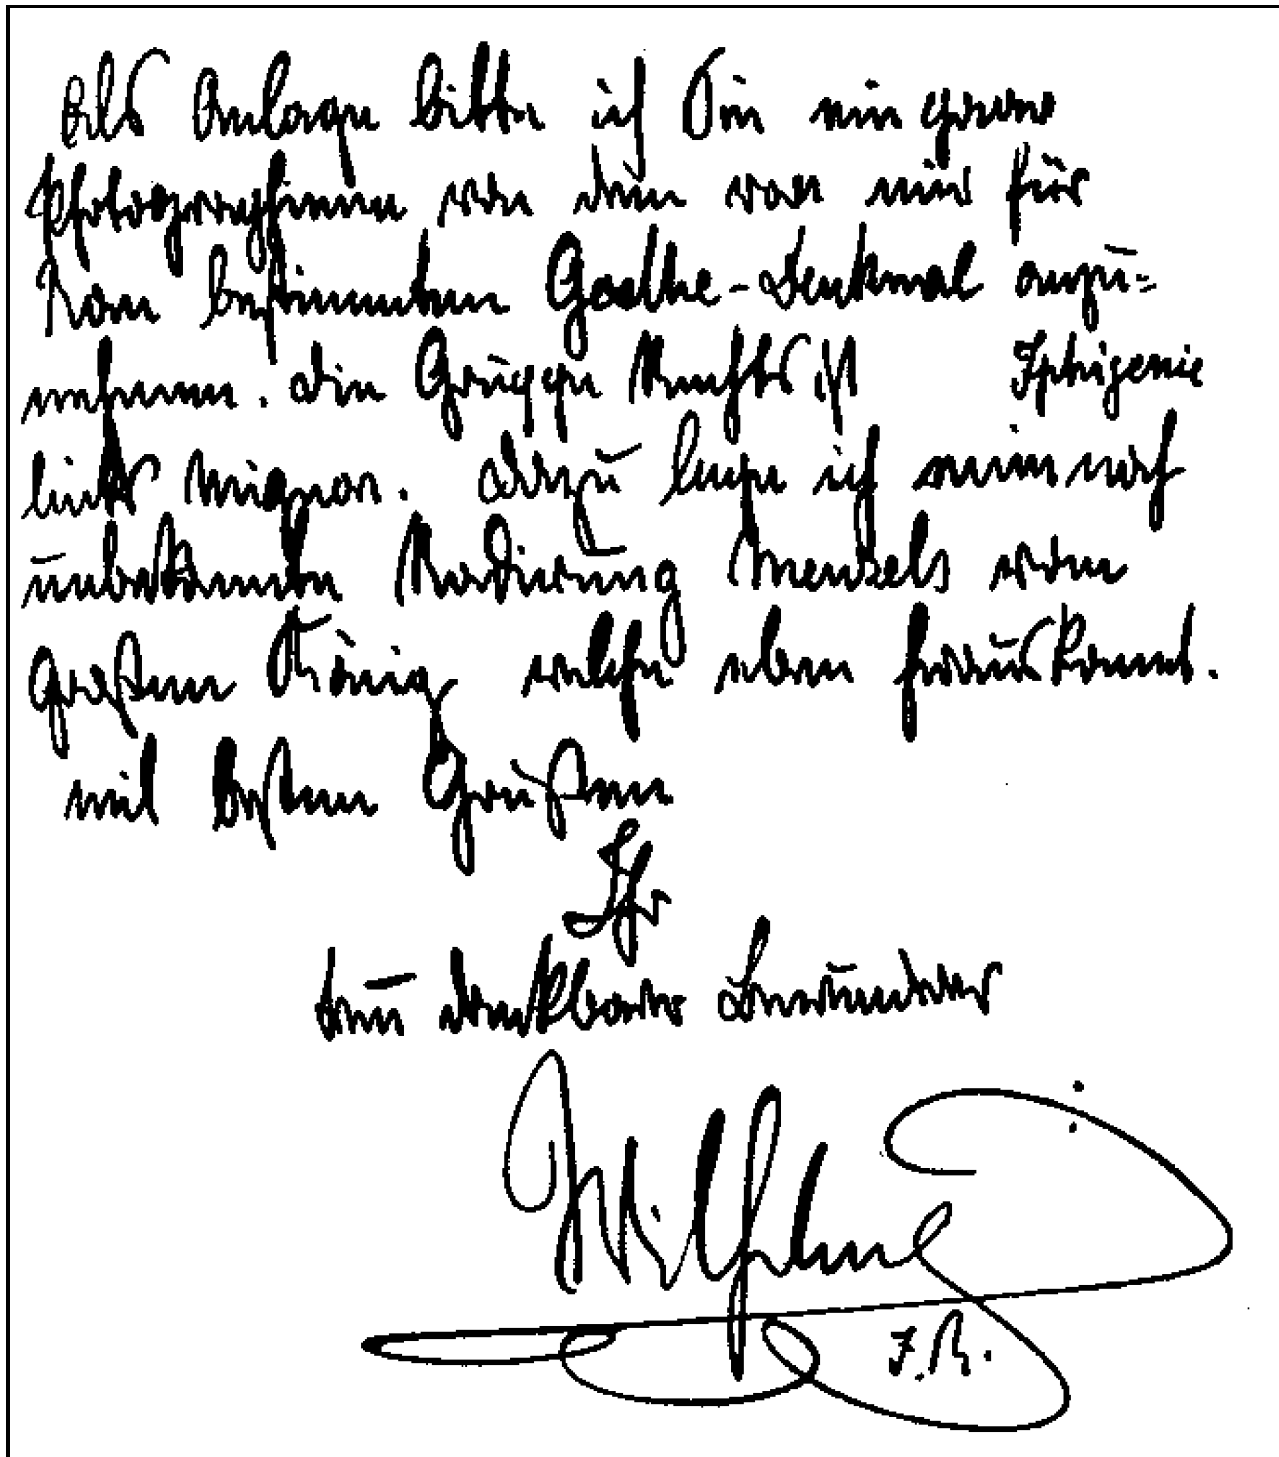 Als Anlage bitte ich Sie ein paar
Photographieen von dem von mir für
Rom bestimmten Goethe-Denkmal anzu=
nehmen. Die Gruppe Rechts ist Iphigenie
links Mignon. Dazu lege ich eine noch
unbekannte Radirung Menzels vom
großen König welche eben herauskommt.
Mit besten Grüßen
Ihr
treu dankbarer Bewunderer
Wilhelm
I.R.